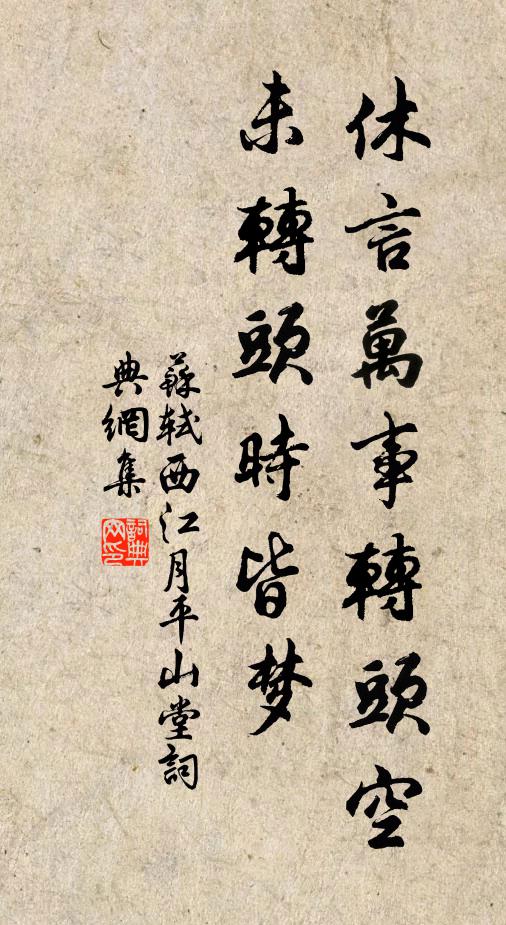 休言萬事轉頭空
未轉頭時皆梦
蘇軾西江月平山堂詞
典網集
詞典
网印